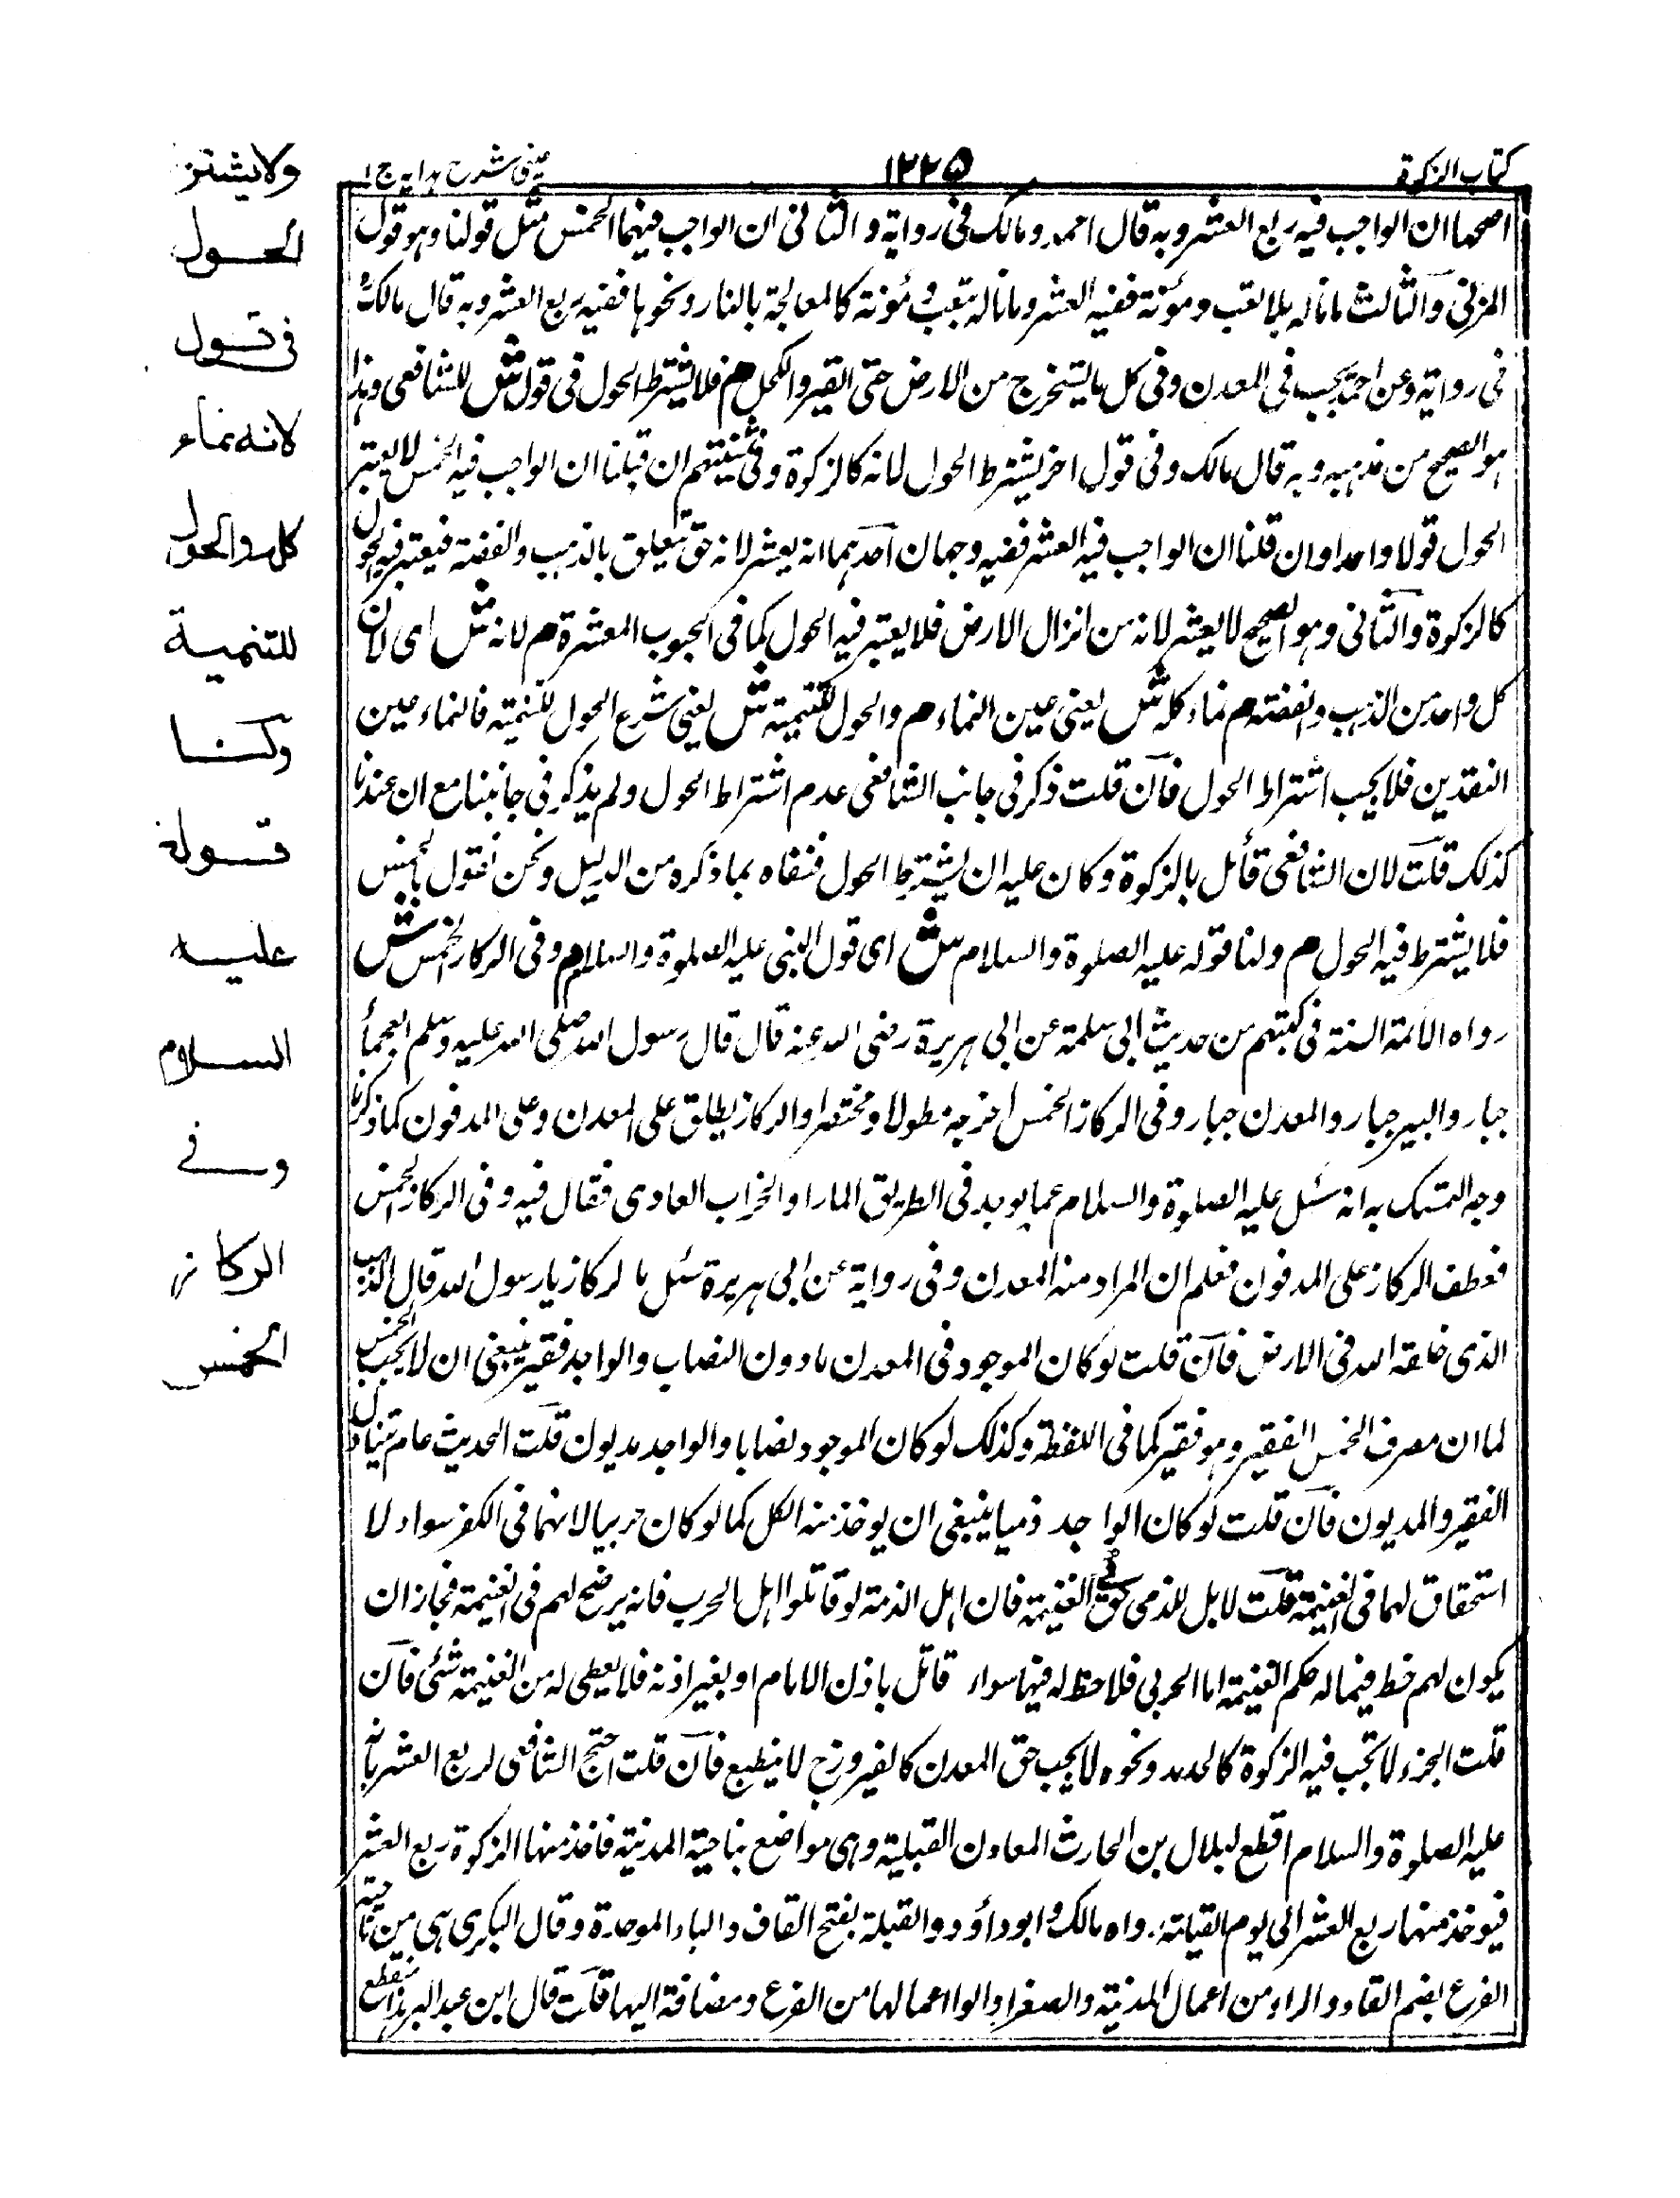 كتاب الزكوة
١٢٢٥
عينى شرح هدايه ج ١
اصحها ان الواجب فيه ربع العشر وبه قال احمد ومالك فى رواية والثانى ان الواجب فيهما الخمس مثل قولنا وهو قول
المزنى والثالث ماناله بلا تعب ومؤنة ففيه العشر وماناله بتعب ومؤنة كالمعالجة بالنار ونحوها ففيه ربع العشر وبه قال مالك
فى رواية وعن احمد يجب فى المعدن وفى كل ما يستخرج من الارض حتى القير والكحل م فلا يشترط الحول فى قول ش للشافعى وهذا
هو الصحيح من مذهبه وبه قال مالك وفى قول اخر يشترط الحول لانه كالزكوة وفى ان قلنا ان الواجب فيه الخمس لا يعتبر
الحول قولا واحدا وان قلنا ان الواجب فيه العشر ففيه وجهان احدهما انه يعشر لانه حق يتعلق بالذهب والفضة فيعتبر فيه الحول
كالزكوة والثانى وهو الصحيح لا يعشر لانه من انزال الارض فلا يعتبر فيه الحول كما فى الحبوب المعشرة م لانه ش اى لان
كل واحد من الذهب والفضة م نماء كله ش يعنى عين النماء م والحول للتنمية ش يعنى شرع الحول للتنميته فالنماء عين
النقدين فلا يجب اشتراط الحول فان قلت ذكر فى جانب الشافعى عدم اشتراط الحول ولم يذكر فى جانبنا مع ان عندنا
كذلك قلت لان الشافعى قائل بالزكوة وكان عليه ان يشترط الحول فنفاه بما ذكره من الدليل ونحن نقول بالخمس
فلا يشترط فيه الحول م ولنا قوله عليه الصلوة والسلام ش اى قول النبى عليه الصلوة والسلام م وفى الركاز الخمس ش
رواه الائمة الستة فى كتبهم من حديث ابى سلمة عن ابى هريرة رضى الله عنه قال قال رسول الله صلى الله عليه وسلم العجماء
جبار والبير جبار والمعدن جبار وفى الركاز الخمس اخرجه مطولا ومختصرا والركاز يطلق على المعدن وعلى المدفون كما ذكرنا
وجه التمسك به انه سئل عليه الصلوة والسلام عما يوجد فى الطريق المار او الخراب العادى فقال فيه وفى الركاز الخمس
فعطف الركاز على المدفون فعلم ان المراد منه المعدن وفى رواية عن ابى هريرة سئل ما لركاز يا رسول الله قال الذهب
الذى خلقه الله فى الارض فان قلت لو كان الموجود فى المعدن مادون النصاب والواجد فقير ينبغى ان لا يجب الخمس
لما ان مصرف الخمس الفقير وهو فقير كما فى اللقطة وكذلك لو كان الموجود نصابا والواجد مديون قلت الحديث عام يتناول
الفقير والمديون فان قلت لو كان الواجد ذميا ينبغى ان يوخذ منه الكل كما لو كان حربيا لانهما فى الكفر سواء لا
استحقاق لهما فى الغنيمة قلت لا بل للذمى حق فى الغنيمة فان اهل الذمة لو قاتلوا اهل الحرب فانه يرضخ لهم فى الغنيمة فجاز ان
يكون لهم خط فيما له حكم الغنيمة اما الحربى فلا حظ له فيها سواء قاتل باذن الامام او بغير اذنه فلا يعطى له من الغنيمة شئ فان
قلت الجزء لا تجب فيه الزكوة كالحديد ونحوه لا يجب حق المعدن كالفيروزج لا ينطبع فان قلت احتج الشافعى لربع العشر بانه
عليه الصلوة والسلام اقطع لبلال بن الحارث المعادن القبلية وهى مواضع بناحية المدنية فاخذ منها الزكوة ربع العشر
فيوخذ منها ربع العشر الى يوم القيامة رواه مالك وابو داؤد والقبلة بفتح القاف والباء الموحدة وقال البكرى هى من ناحية
الفرع بضم الفاء والراء من اعمال المدنية والصفراء واعمالها من الفرع ومضافة اليها قلت قال ابن عبد البر هذا منقطع
ولا يشترط
الحول
فى قول
لانه نماء
كله والحول
للتنمية
ولنا
قوله
عليه
السلام
وفى
الركاز
الخمس